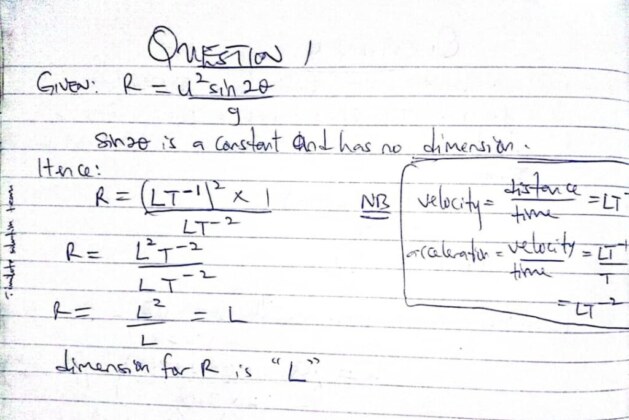 QUESTION 1
GIVEN: R = u² sin 2θ
g
Sin2θ is a constant and has no dimension.
Hence:
R = (LT⁻¹)² × 1
LT⁻²
R = L²T⁻²
LT⁻²
R = L² = L
L
dimension for R is "L"
NB
velocity = distance = LT⁻
time
acceleration = velocity = LT⁻¹
time T
= LT⁻²